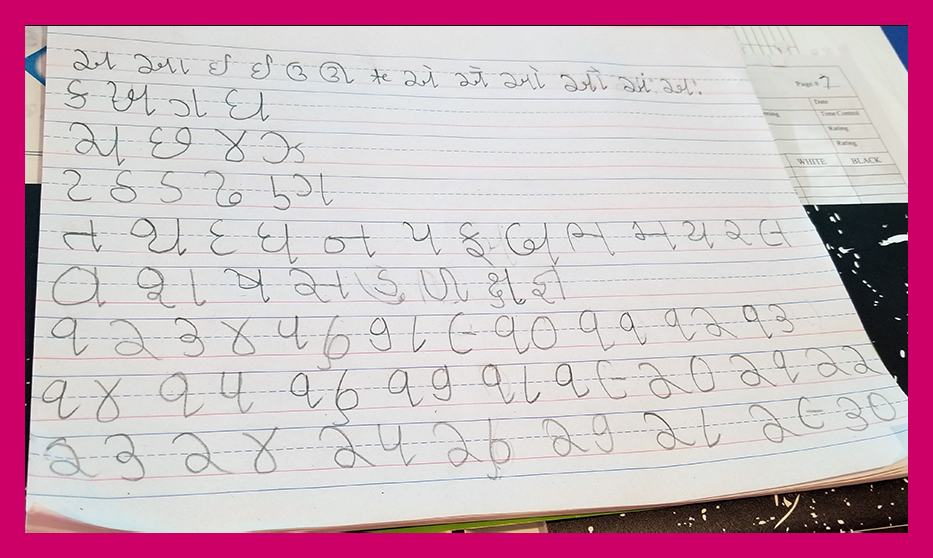 અ આ ઇ ઈ ઉ ઊ ઋ એ ઐ ઓ ઔ અં અઃ
ક ખ ગ ઘ
ચ છ જ ઝ
ટ ઠ ડ ઢ ણ
ત થ દ ધ ન પ ફ બ ભ મ ય ર લ
વ શ ષ સ હ ળ ક્ષ જ્ઞ
૧ ૨ ૩ ૪ ૫ ૬ ૭ ૮ ૯ ૧૦ ૧૧ ૧૨ ૧૩
૧૪ ૧૫ ૧૬ ૧૭ ૧૮ ૧૯ ૨૦ ૨૧ ૨૨
૨૩ ૨૪ ૨૫ ૨૬ ૨૭ ૨૮ ૨૯ ૩૦
Page # 7
Date
Time Control
Rating
Rating
WHITE BLACK